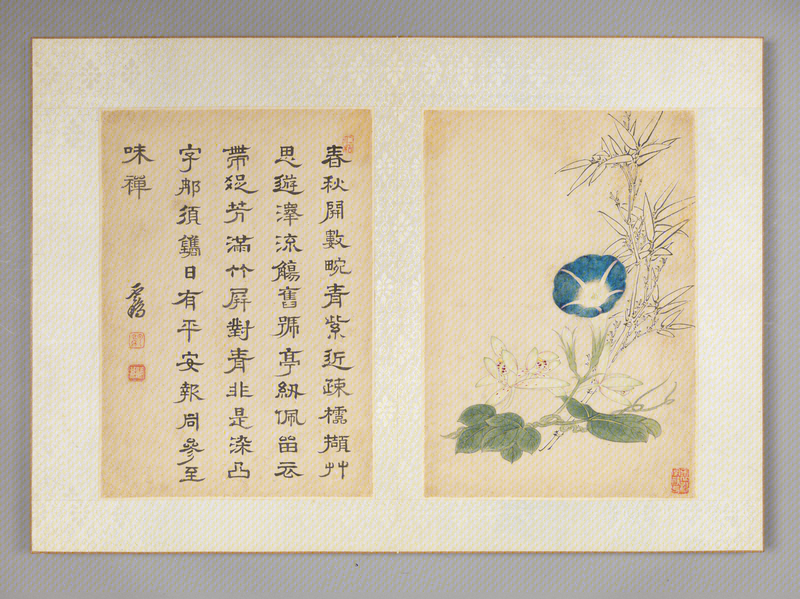 春秋開數畹青紫近疎櫺擷艸
思遊澤流觴舊號亭紉佩畱云
帶芳滿竹屏對青非是染凸
字那須鐫日有平安報同參至
味禪